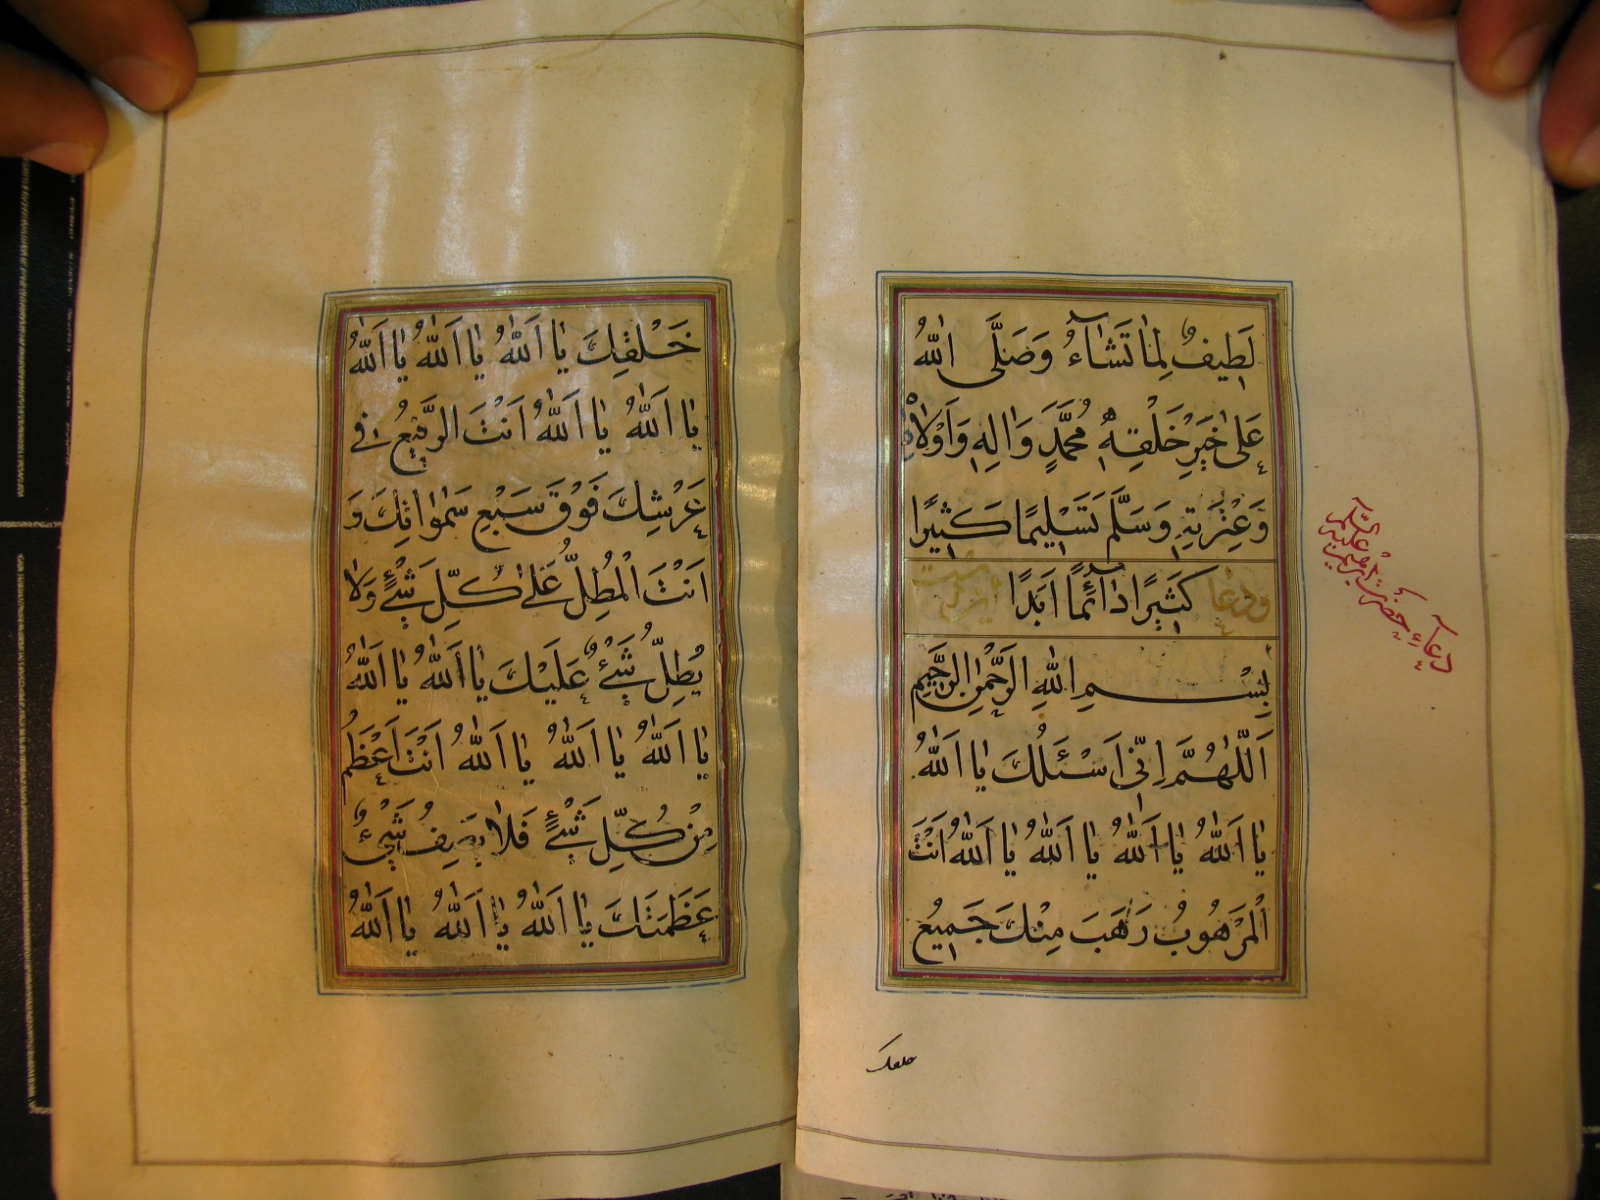 لَطِيفٌ لِمٰا تَشٰآءُ وَصَلَّی اللّٰهُ
عَلیٰ خَيْرِ خَلْقِهٖ مُحَمَّدٍ وَاٰلِهٖ وَاَوْلاٰدِهٖ
وَعِتْرَتِهٖ وَسَلَّمَ تَسْلِيمًا كَثِيرًا
كَثِيرًا دٰآئِمًا اَبَدًا
بِسْمِ اللّٰهِ الرَّحْمٰنِ الرَّحِيمِ
اَللّٰهُمَّ اِنّٖی اَسْئَلُكَ يٰا اَللّٰهُ
يٰا اَللّٰهُ يٰا اَللّٰهُ يٰا اَللّٰهُ يٰا اَللّٰهُ اَنْتَ
الْمَرْهُوبُ رَهَبَ مِنْكَ جَمِيعُ
خلقك
دعاء حضرت
خَلْقِكَ يٰا اَللّٰهُ يٰا اَللّٰهُ يٰا اَللّٰهُ
يٰا اَللّٰهُ يٰا اَللّٰهُ اَنْتَ الرَّفِيعُ فٖی
عَرْشِكَ فَوْقَ سَبْعِ سَمٰوٰاتِكَ وَ
اَنْتَ الْمُطِلُّ عَلیٰ كُلِّ شَیْءٍ وَلاٰ
يُطِلُّ شَیْءٌ عَلَيْكَ يٰا اَللّٰهُ يٰا اَللّٰهُ
يٰا اَللّٰهُ يٰا اَللّٰهُ يٰا اَللّٰهُ اَنْتَ اَعْظَمُ
مِنْ كُلِّ شَیْءٍ فَلاٰ يَصِفُ شَیْءٌ
عَظَمَتَكَ يٰا اَللّٰهُ يٰا اَللّٰهُ يٰا اَللّٰهُ